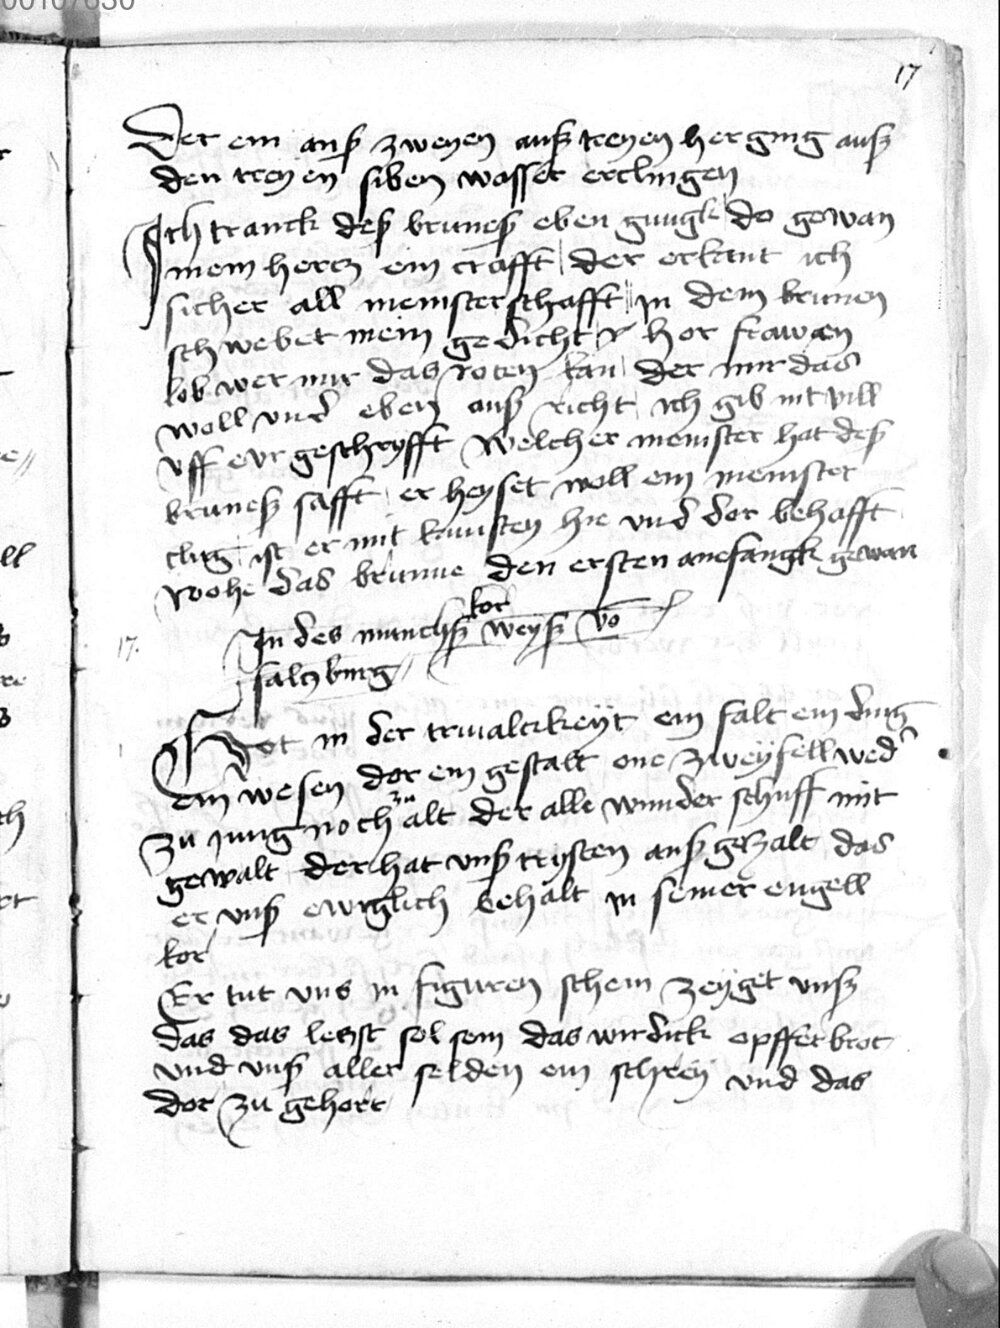 00107630
17
Der ein auß zweyen auß treyen her ging auß
den treyen siben wasser erclingen
Ich tranck deß bruneß eben gnugk do gewan
mein hercz ein crafft der erkant ich
sicher all meinsterschafft in dem brunen
schwebet mein gedicht hor frawen
lob wer mir das roten kan der mir das
woll vnd eben auß richt ich gib nit vill
vff eur geschryfft welcher meinster hat deß
bruneß safft er heyset woll ein meinster
clug ist er mit kunsten hie vnd dor behafft
wohe das brunne den ersten anefangk gewan
kor
17. In des munchß weyß vo
saltzburg
Got in der triualtikeyt ein falt ein ding
ein wesen dor ein gestalt one zweyfell wed
zu
zu jung noch alt der alle wunder schuff mit
gewalt der hat vnß trysten auß gezalt das
er vnß ewiglich behalt in seiner engell
kor
Er tut vns in figuren schein zeyget vnß
das das letzst sol sein das wirdick opffer brot
vnd vnß aller selden ein schrein vnd das
dor zu gehort